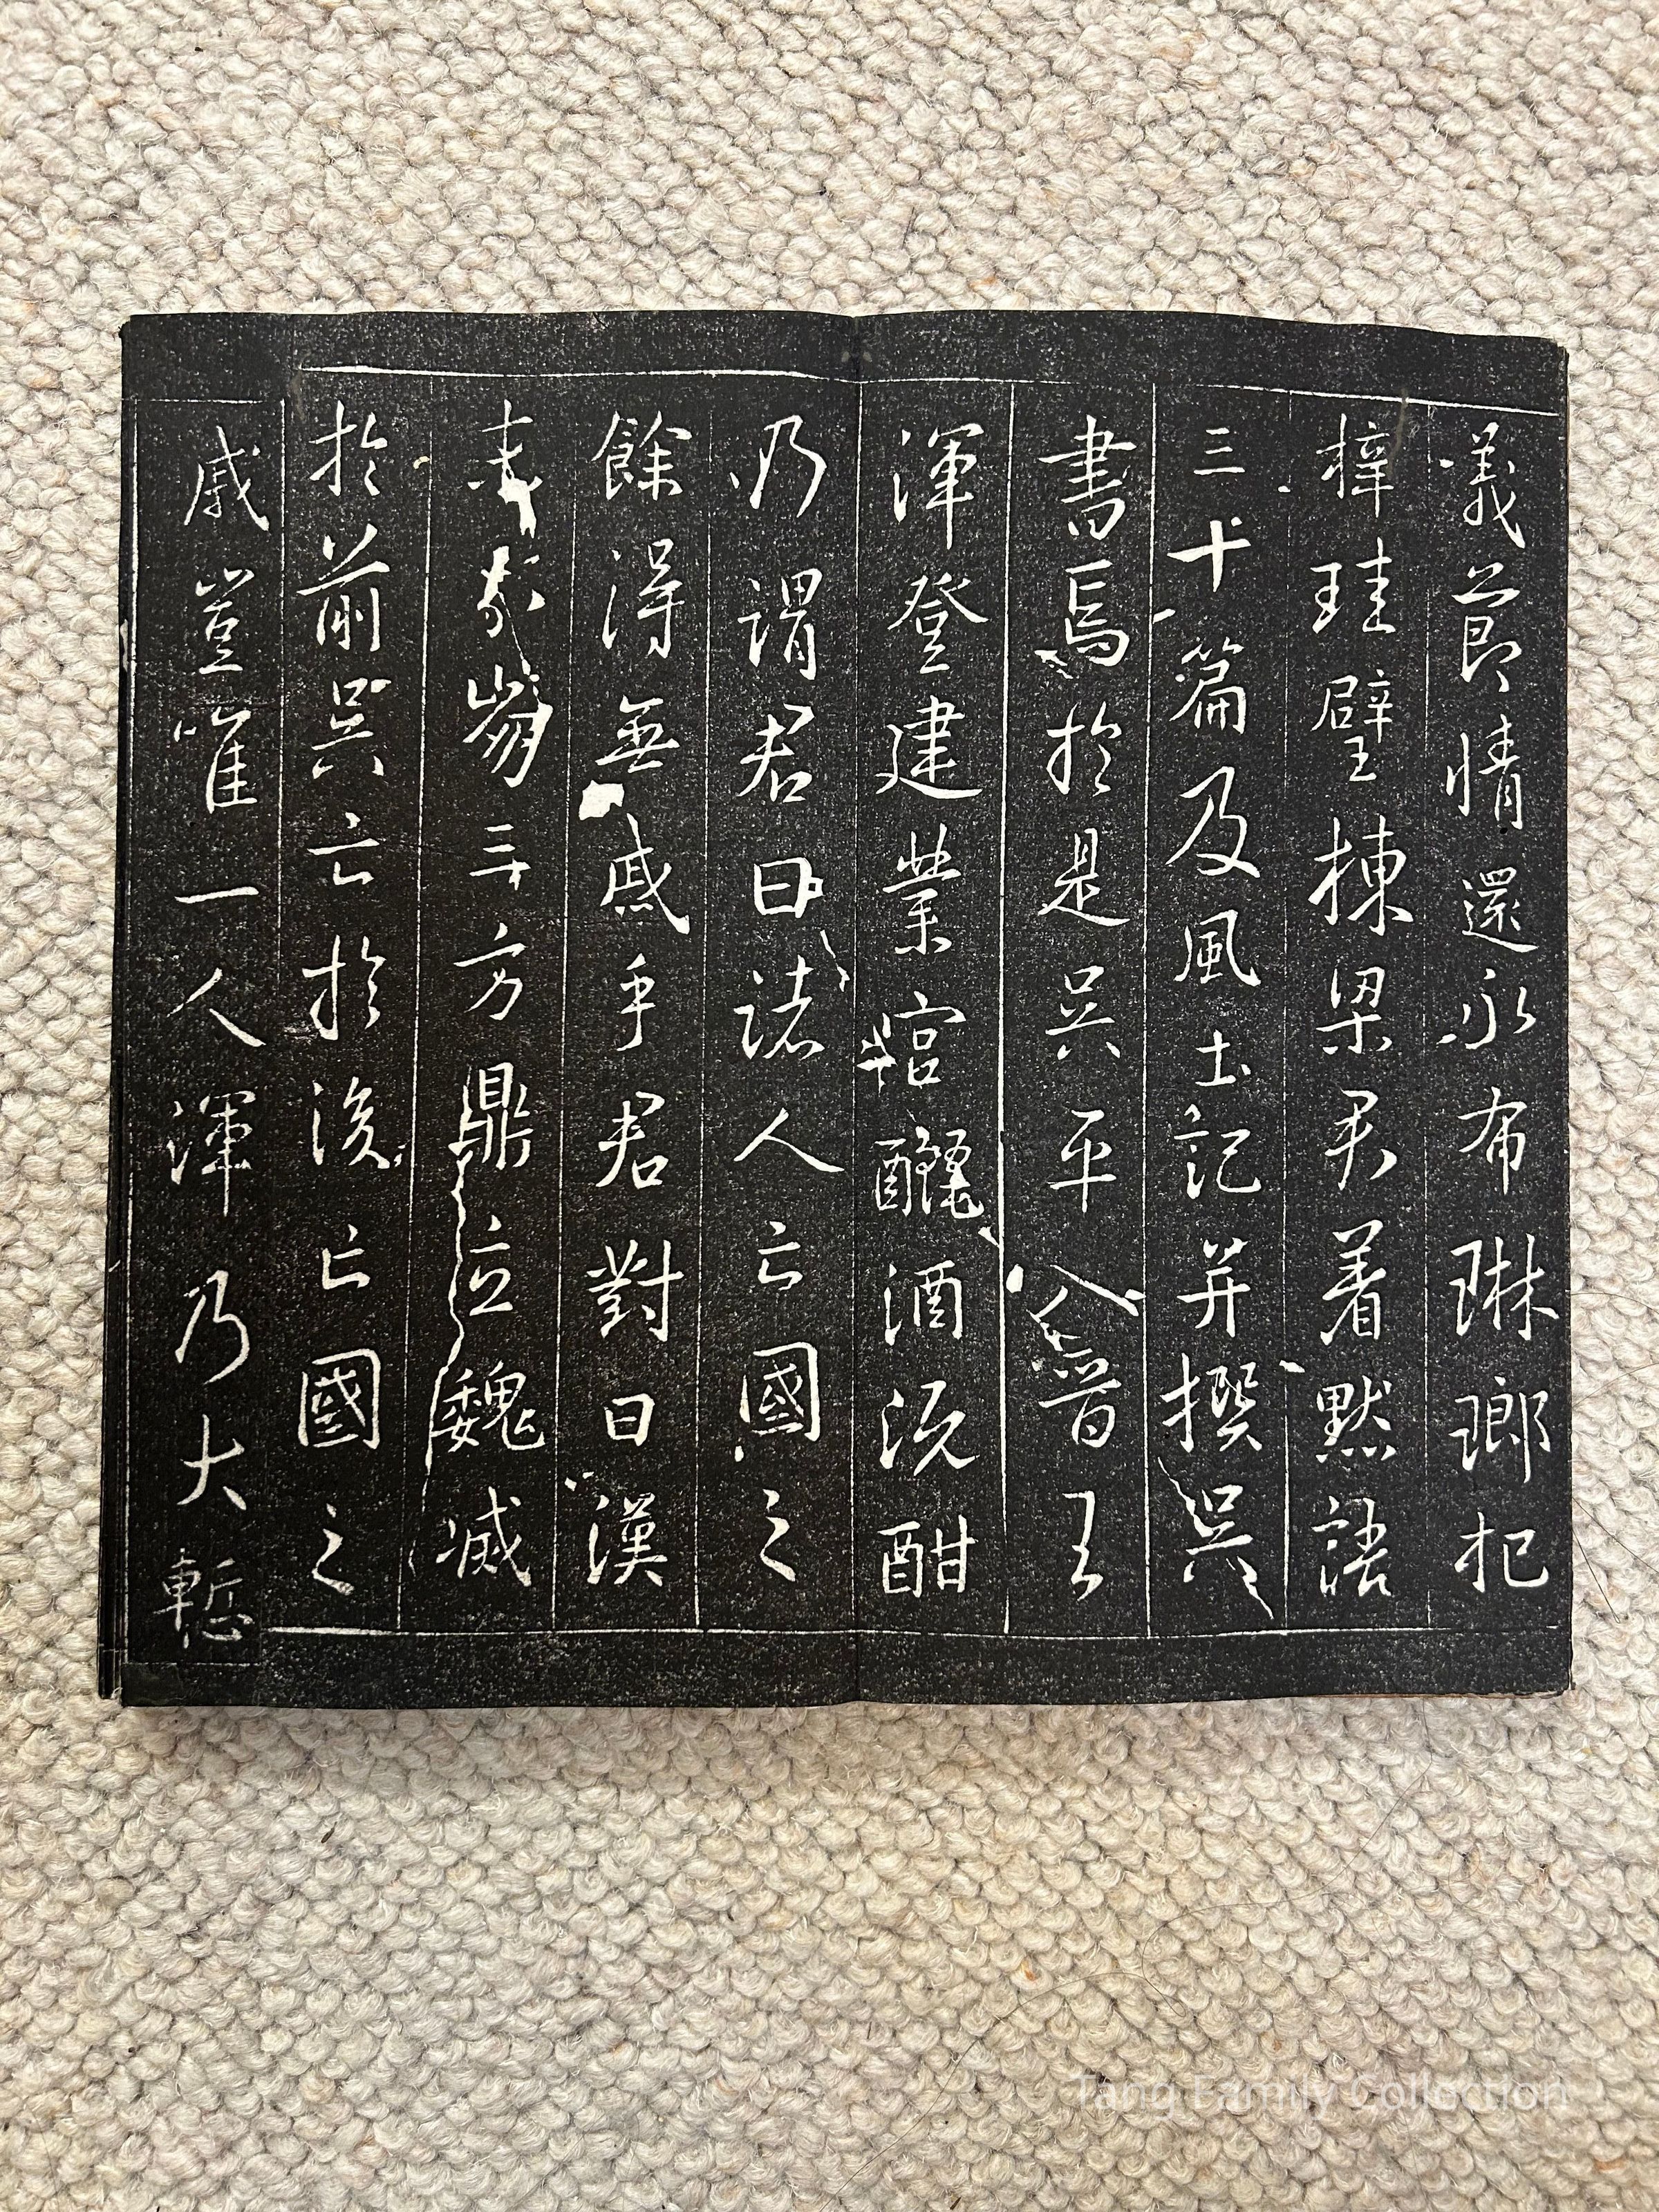 義節情還永布琳瑯杞
梓珪璧棟梁君着默語
三十篇及風土記并撰吳
書焉於是吳平入晉王
渾登建業宮釃酒既酣
乃謂君曰諸人亡國之
餘得無慼乎君對曰漢
末分崩三方鼎立魏滅
於前吳亡於後亡國之
慼豈唯一人渾乃大慙
Tang Family Collection